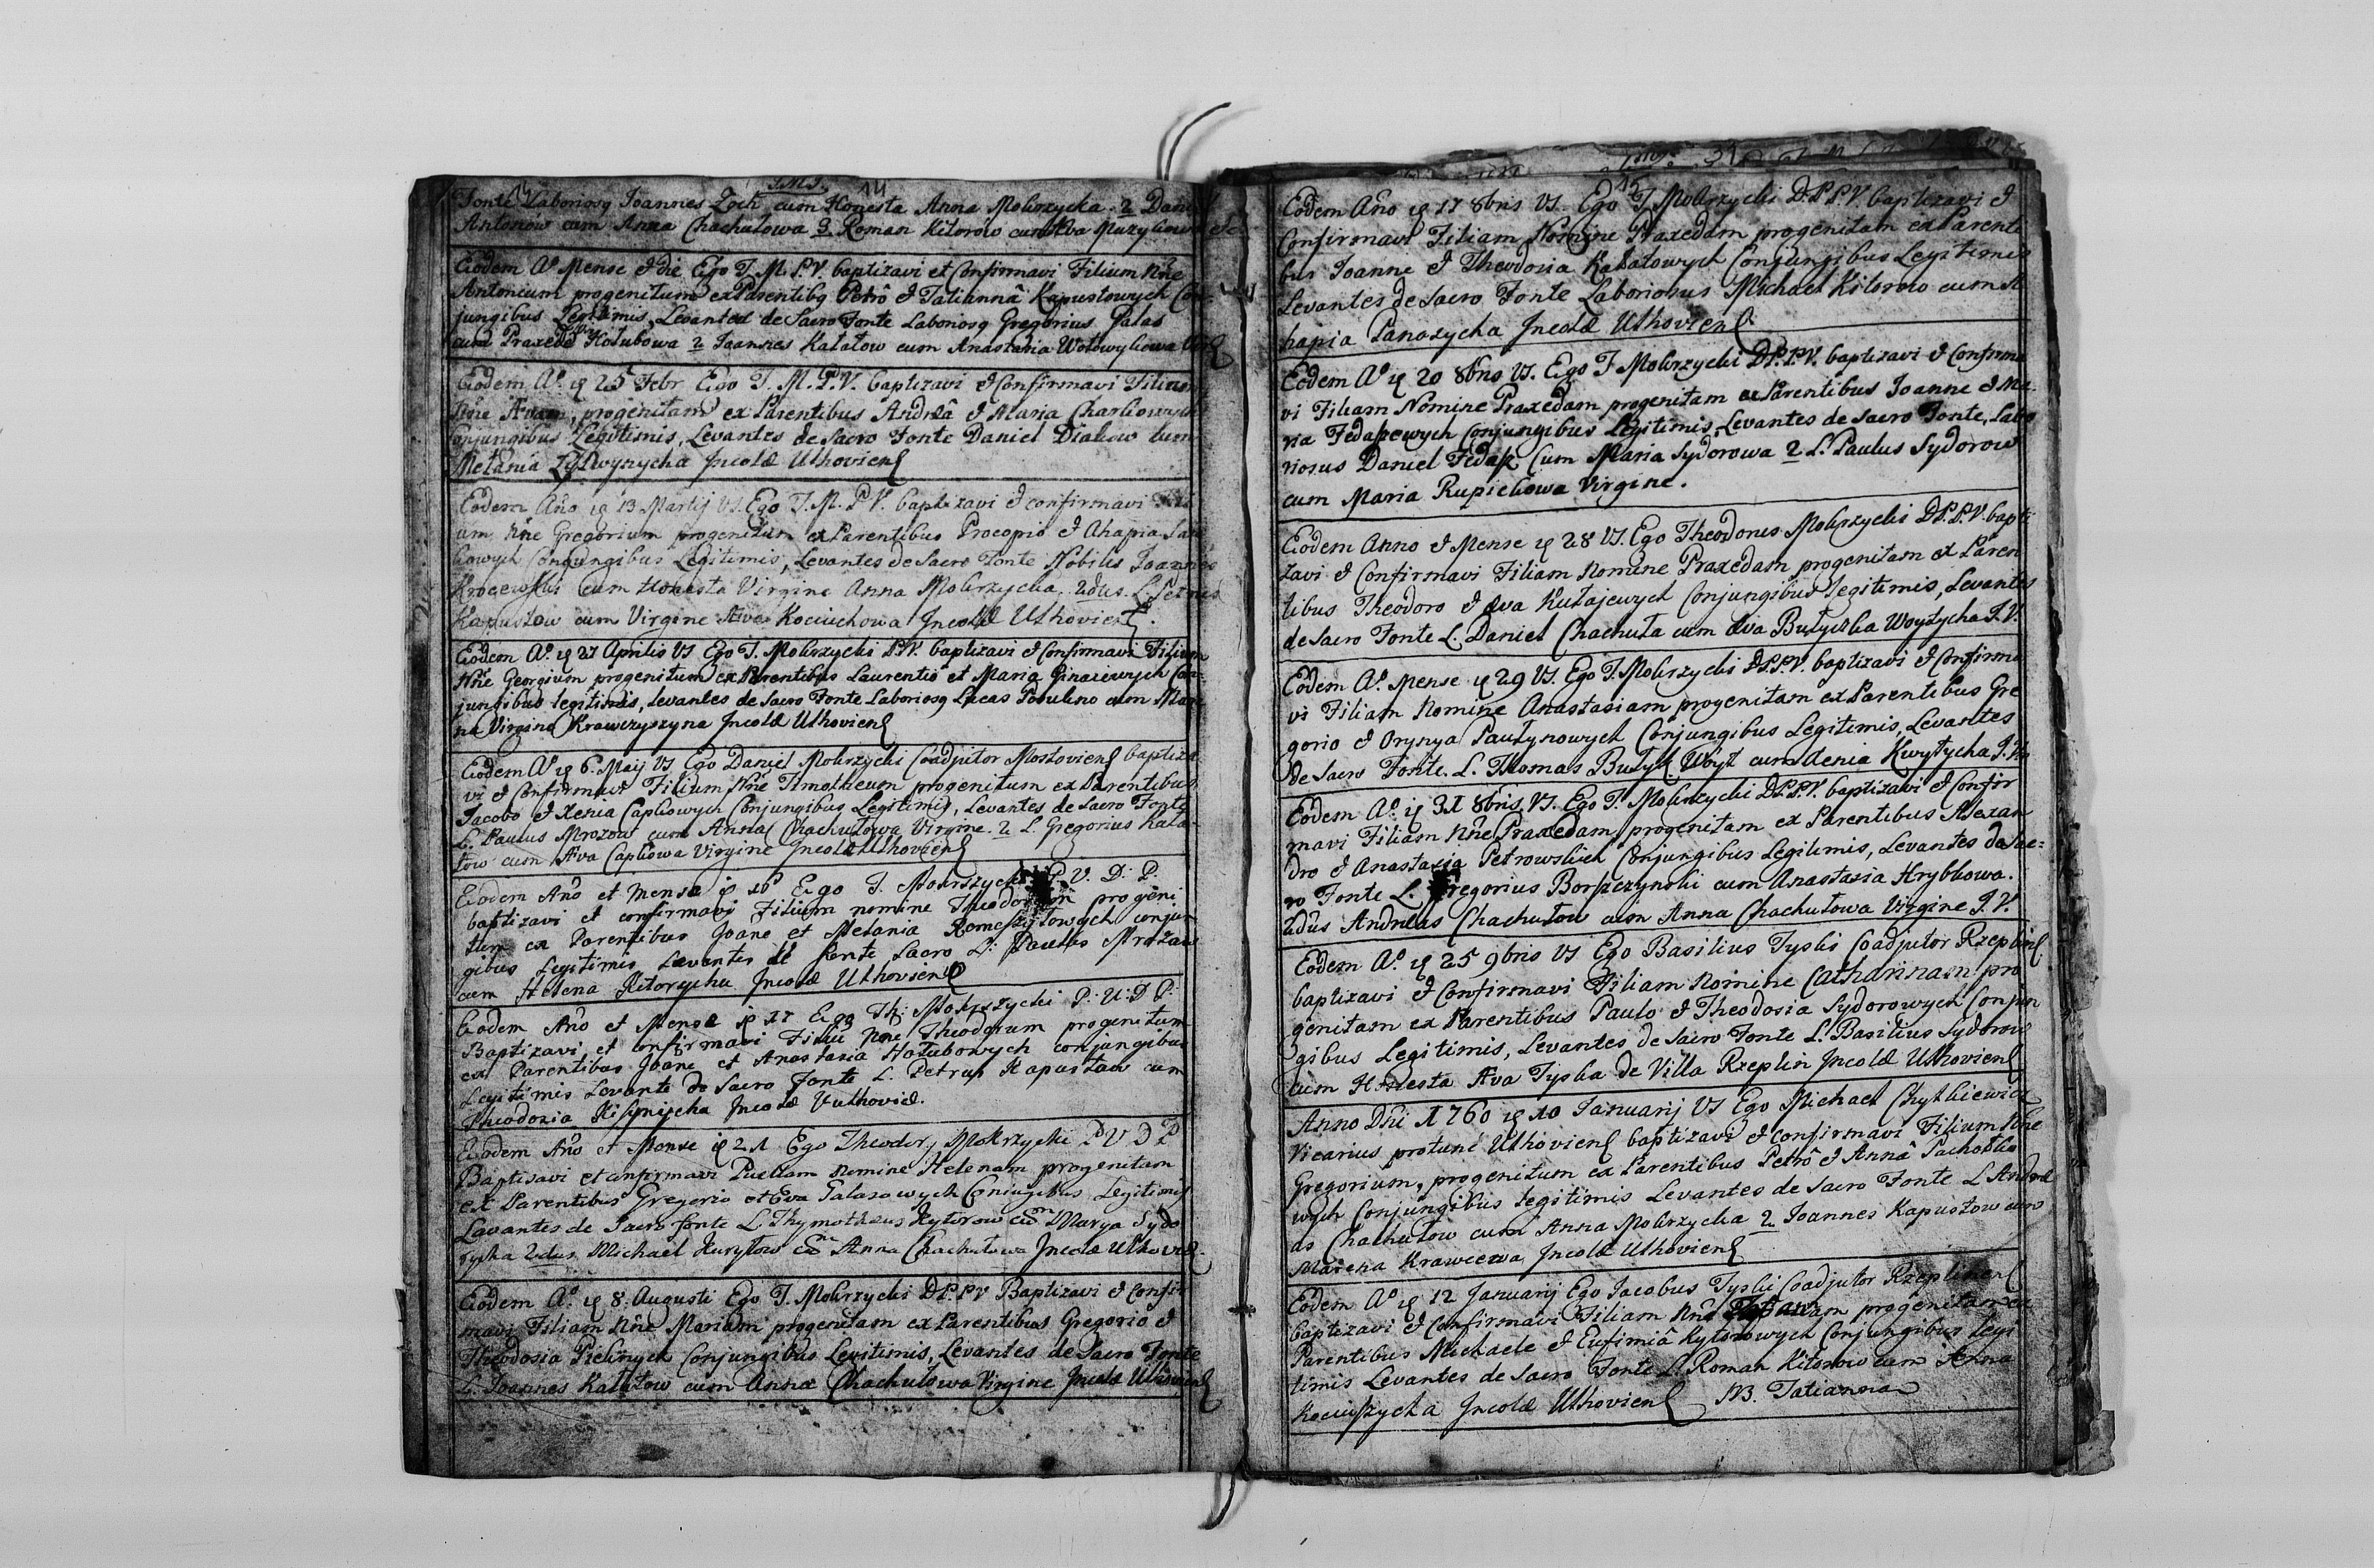 J.M.J.
14
Fonte Laboriosq Joannes Zoch cum Honesta Anna Mokrzycka. 2 Dani
Antonow cum Anna Chachułowa 3 Roman Kitorow cum Eva Muzykowa
Eodem Aº Mense & die Ego T. M. P.V. baptizavi et Confirmavi Filium Nñe
Antonium progenitum ex Parentibq Petrô & Tatiannâ Kapustowych Con
jungibus Legitimis, Levantes de Sacro Fonte Laboriosq Gregorius Galas
cum Praxeda Hołubowa 2 Joannes Kałatow cum Anastasia Wołowykowa
Eodem Aº. 25 Febr. Ego T. M. P.V. baptizavi & Confirmavi Filiam
Nñe Ævam, progenitam ex Parentibus Andreâ & Maria Charkowych
Conjungibus Legitimis, Levantes de Sacro Fonte Daniel Diakow cum
Melania Incolæ Uthovienſ
Eodem Año 13 Martij VS. Ego T. M. P V. baptizavi & confirmavi Fili
um Nñe Gregorium progenitum ex Parentibus Procopio & Ahapia
kowych Conjungibus Legitimis, Levantes de Sacro Fonte Nobilis Joannes
Krocewski cum Honesta Virgine Anna Mokrzycka. 2dus. L. Petrus
Kapustow cum Virgine Æva Kociuchowa Incolæ Uthovienſ.
Eodem Aº. 27 Aprilis VS Ego T. Mokrzycki P.V. baptizavi & Confirmavi Filium
Nñe Georgium progenitum ex Parentibus Laurentio et Maria Conjungibus
jungibus legitimis, Levantes de Sacro Fonte Laboriosq Lucas cum Mari
na Virgine Krawczyszyna Incolæ Uthovienſ
Eodem Aº 6. Maij VS Ego Daniel Mokrzycki Coadjutor Mostovienſ baptiza
vi & Confirmavi Filium Nñe Timotheum progenitum ex Parentibus
Jacobo & Xenia Capkowych Conjungibus Legitimis, Levantes de Sacro Fonte
L. Paulus Mrozow cum Anna Chachułowa Virgine. 2 L. Gregorius Kała
tow cum Æva Capkowa Virgine Incolæ Uthovienſ
Eodem Año et Mense Ego T. Mokrzycki P. V. D: P.
baptizavi et confirmavi Filium nomine Theodorum progeni
tum ex Parentibus Joane et Melania conjun
gibus Legitimis Levantes de Fonte Sacro L: Paulus Mrozow
cum Helena Kitorycha Incolæ Uthovienſ
Eodem Año et Mense 17 Ego Th: Mokrzycki P: V: D P:
Baptizavi et confirmavi Filiũ Nõe Theodorum progenitum
ex Parentibus Joane et Anastasia Hołubowych conjungibus
Legitimis Levante de Sacro Fonte L. Petrus Kapustow cum
Theodozia Incolæ Vuthovie.
Eodem Año et Mense 21 Ego Theodorj Mokrzycki P V D P
Baptisavi et confirmavi Puellam nomine Helenam progenitam
ex Parentibus Gregorio et Eva Galasowych Coniugibus Legitimis
Lavantes de Sacro fonte L Thymotheus Kytorow cũ Marya Sydo
rycha 2dus Michael Kuryłow cũ Anna Chachułowa Incolæ Uthovie
Eodem Aº. 8. Augusti Ego T. Mokrzycki D.P.P V Baptizavi & Confir
mavi Filiam Nñe Mariam progenitam ex Parentibus Gregorio &
Theodosia Conjungibus Legitimis, Levantes de Sacro Fonte
L. Joannes Kałatow cum Anna Chachułowa Virgine Incolæ Uthovienſ
15
Eodem Año 17 8bris VS. Ego T Mokrzycki D.P.P.V. baptizavi &
Confirmavi Filiam Nomine Praxedam progenitam ex Parenti
bus Joanne & Theodosia Kałatowych Conjungibus Legitimis
Levantes de Sacro Fonte Laboriosus Michael Kitorow cum A
hapia Panasycha Incolæ Uthovienſ.
Eodem Aº 20 8bris VS. Ego T Mokrzycki D.P.P.V. baptizavi & Confirma
vi Filiam Nomine Praxedam progenitam ex Parentibus Joanne & Ma
ria Fedaszowych Conjungibus Legitimis, Levantes de Sacro Fonte, Labo
riosus Daniel Fedasz Cum Maria Sydorowa 2 L. Paulus Sydorow
cum Maria Rupichowa Virgine.
Eodem Anno & Mense 28 VS. Ego Theodorus Mokrzycki D.P.P.V. bapti
zavi & Confirmavi Filiam Nomine Praxedam progenitam ex Paren
tibus Theodoro & Æva Kułajewych Conjungibus Legitimis, Levantes
de Sacro Fonte L. Daniel Chachuła cum Æva Butyczka Woytycha I. V.
Eodem Aº. Mense 29 VS. Ego T. Mokrzycki D.P.P.V. baptizavi & Confirma
vi Filiam Nomine Anastasiam progenitam ex Parentibus Gre
gorio & Orynya Pautynowych Conjungibus Legitimis, Levantes
de Sacro Fonte. L. Thomas Butyk Woyt cum Xenia Kwytycha I. V.
Eodem Aº. 31 8bris VS. Ego T. Mokrzycki D.P.P.V. baptizavi & Confir
mavi Filiam Nñe Praxedam progenitam ex Parentibus Alexan
dro & Anastasia Petrowskich Conjungibus Legitimis, Levantes de Sac=
ro Fonte L. Gregorius Borszczynski cum Anastasia Hrybkowa.
2dus Andreas Chachułow cum Anna Chachułowa Virgine I. V.
Eodem Aº. 25 9bris VS Ego Basilius Tyski Coadjutor Rzeplinſ
baptizavi & Confirmavi Filiam Nomine Catharinam pro
genitam ex Parentibus Paulo & Theodosia Sydorowych Conjun
gibus Legitimis, Levantes de Sacro Fonte L. Basilius Sydorow
cum Honesta Æva Tyska de Villa Rzeplin Incolæ Uthovienſ
Anno Dñi 1760 10 Januarij VS Ego Michael Chytkiewicz
Vicarius protunc Uthovienſ baptizavi & Confirmavi Filium Nñe
Gregorium, progenitum ex Parentibus Petrô & Annâ Pachołko
wych Conjungibus legitimis Levantes de Sacro Fonte L Andre
as Chachułow cum Anna Mokrzycka 2 Joannes Kapustow cum
Marena Krawcewa Incolæ Uthovienſ
Eodem Aº 12 Januarij Ego Jacobus Tyski Coadjutor Rzeplinenſ
baptizavi & Confirmavi Filiam Nñe progenitam ex
Parentibus Michaele & Eufimiâ Kytorowych Conjungibus legi
timis Levantes de Sacro Fonte L. Roman Kitorow cum Anna
Kociuszycha Incolæ Uthovienſ NB. Tatianna